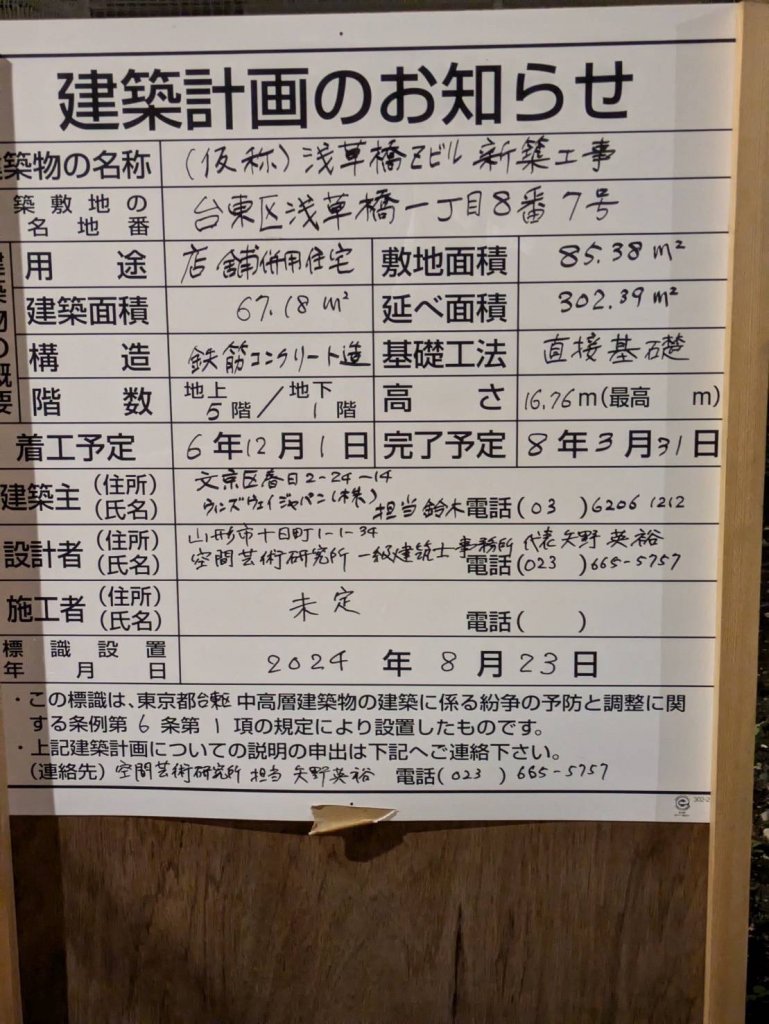 建築計画のお知らせ
築物の名称 (仮称) 浅草橋Zビル 新築工事
築敷地の名地番 台東区浅草橋一丁目8番7号
建築物の概要
用途 店舗併用住宅 敷地面積 85.38㎡
建築面積 67.18㎡ 延べ面積 302.39㎡
構造 鉄筋コンクリート造 基礎工法 直接基礎
階数 地上5階/地下1階 高さ 16.76m(最高 m)
着工予定 6年12月1日 完了予定 8年3月31日
建築主(住所) 文京区春日2-24-14
(氏名) ウィンズウェイジャパン(株) 担当 鈴木 電話(03)6206 1212
設計者(住所) 山形市十日町1-1-34
(氏名) 空間芸術研究所 一級建築士事務所 代表 矢野 英裕
電話(023)665-5757
施工者(住所)(氏名) 未定 電話( )
標識設置年月日 2024年8月23日
・この標識は、東京都台東区 中高層建築物の建築に係る紛争の予防と調整に関
する条例第6条第1項の規定により設置したものです。
・上記建築計画についての説明の申出は下記へご連絡下さい。
(連絡先) 空間芸術研究所 担当 矢野英裕 電話(023)665-5757